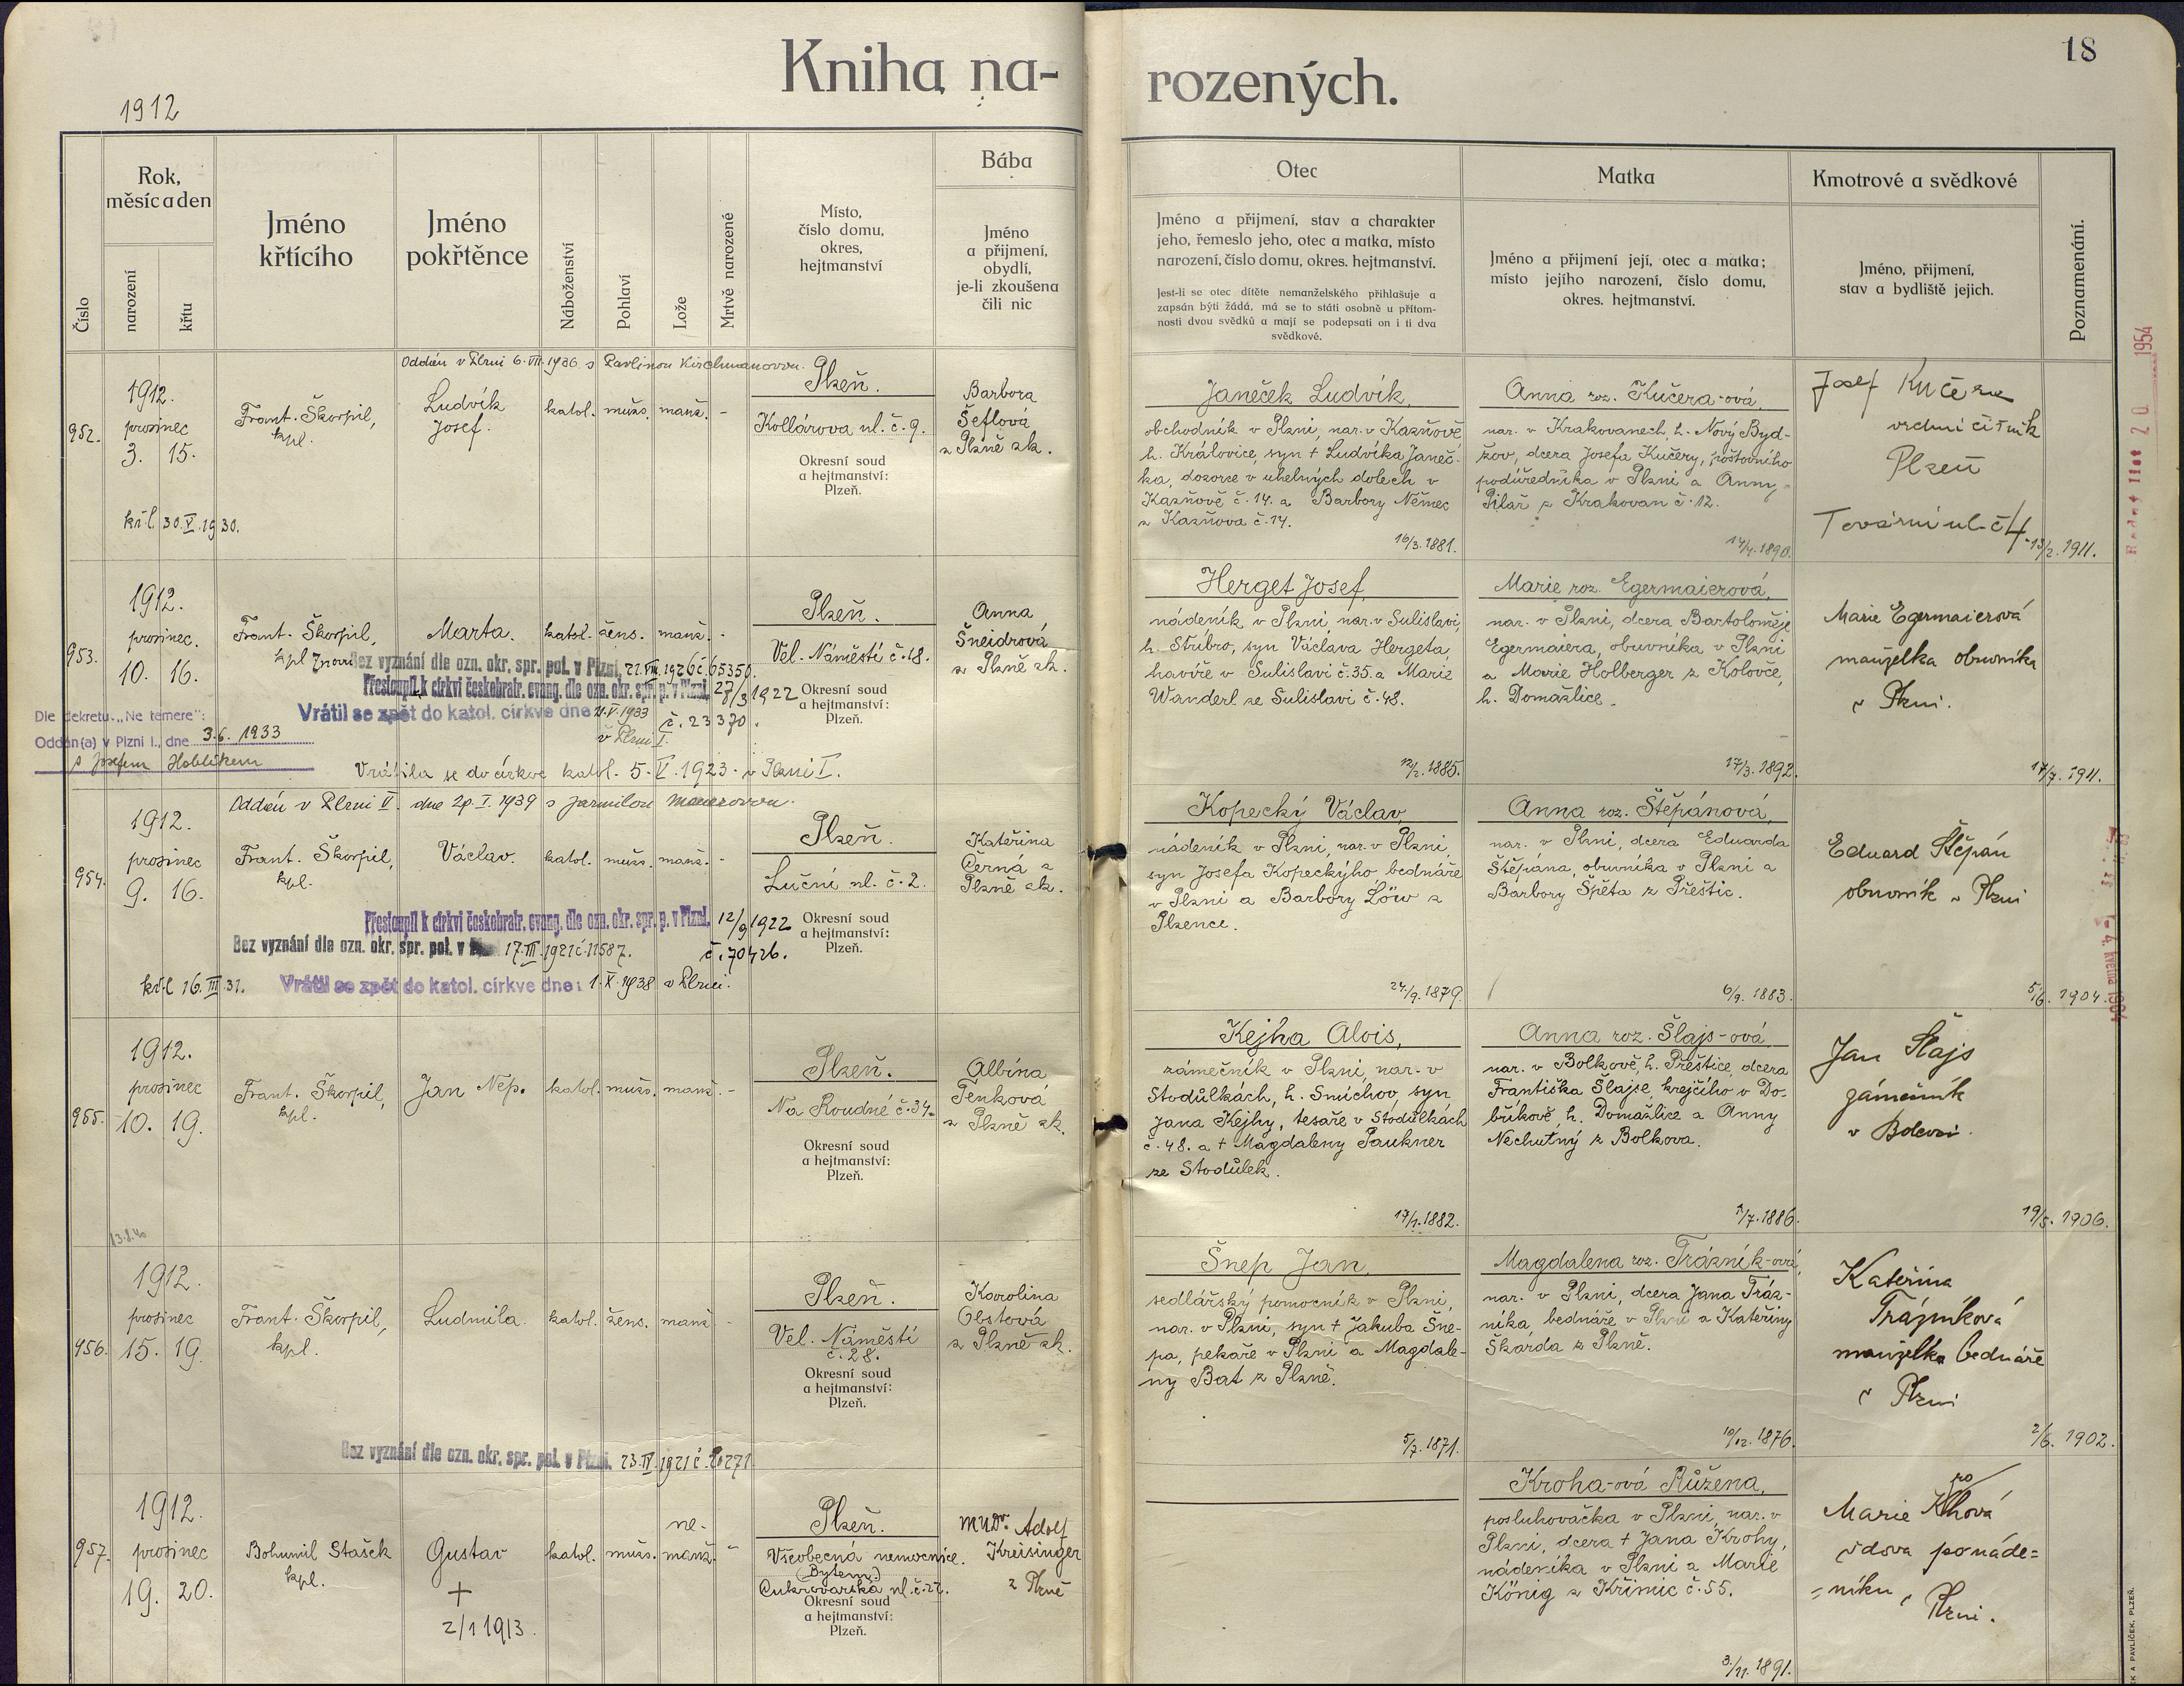 18
Kniha na-
rozených.
1912
Číslo
Rok,
měsíc a den
narození
křtu
Jméno
křtícího
Jméno
pokřtěnce
Náboženství
Pohlaví
Lože
Mrtvě narozené
Místo,
číslo domu,
okres,
hejtmanství
Bába
Jméno
a přijmení,
obydlí,
je-li zkoušena
čili nic
Otec
Jméno a přijmení, stav a charakter
jeho, řemeslo jeho, otec a matka, místo
narození, číslo domu, okres. hejtmanství.
Jest-li se otec dítěte nemanželského přihlašuje a
zapsán býti žádá, má se to státi osobně u přítom-
nosti dvou svědků a mají se podepsati on i ti dva
svědkové.
Matka
Jméno a přijmení její, otec a matka;
místo jejího narození, číslo domu,
okres. hejtmanství.
Kmotrové a svědkové
Jméno, přijmení,
stav a bydliště jejich.
Poznamenání.
Oddán v Plzni 6. VII. 1936 s Pavlinou Kirchmanovou.
952.
1912.
prosinec
3. 15.
kř. l. 30. V. 1930.
Frant. Škorpil,
kpl.
Ludvík
Josef.
katol. mužs. manž. -
Plzeň.
Kollárova ul. č. 9.
Okresní soud
a hejtmanství:
Plzeň.
Barbora
Šeflová
z Plzně zk.
Janeček Ludvík,
obchodník v Plzni, nar. v Kazňově
h. Královice, syn † Ludvíka Janeč-
ka, dozorce v uhelných dolech v
Kazňově č. 14. a Barbory Němec
z Kazňova č. 14.
16/3. 1881.
Anna roz. Kučera-ová,
nar. v Krakovanech, h. Nový Byd-
žov, dcera Josefa Kučery, poštovního
podúředníka v Plzni a Anny
Pilař z Krakovan č. 12.
14/4. 1890.
Josef Kučera
vrchní číšník
Plzeň
Tovární ul. č 4
13/2. 1911.
953.
1912.
prosinec.
10. 16.
Frant. Škorpil,
kpl
Marta.
katol. žens. manž. -
Bez vyznání dle ozn. okr. spr. pol. v Plzni, 27. VIII. 1926 č. 65350.
Přestoupil k církvi českobratr. evang. dle ozn. okr. spr. p. v Plzni. 27/3 1922
č. 23370.
Vrátil se zpět do katol. církve dne 21. V. 1933
v Plzni I.
Dle dekretu „Ne temere":
Oddán(a) v Plzni I., dne 3. 6. 1933
s Josefem Hoblíkem
Vrátila se do církve katol. 5. V. 1923. v Plzni I.
Plzeň.
Vel. Náměstí č. 18.
Okresní soud
a hejtmanství:
Plzeň.
Anna
Šneidrová
z Plzně zk.
Herget Josef,
nádeník v Plzni, nar. v Sulislavi,
h. Stříbro, syn Václava Hergeta,
havíře v Sulislavi č. 35. a Marie
Wanderl ze Sulislavi č. 48.
12/2. 1885.
Marie roz. Egermaierová,
nar. v Plzni, dcera Bartoloměje
Egermaiera, obuvníka v Plzni
a Marie Holberger z Kolovče,
h. Domažlice.
17/3. 1892.
Marie Egermaierová
manželka obuvníka
v Plzni.
17/7. 1911.
Oddán v Plzni II. dne 29. I. 1939 s Jarmilou
954.
1912.
prosinec
9. 16.
kř. l 16. III. 31.
Frant. Škorpil,
kpl.
Václav.
katol. mužs. manž. -
Přestoupil k církvi českobratr. evang. dle ozn. okr. spr. p. v Plzni. 12/9 1922
č. 70426.
Bez vyznání dle ozn. okr. spr. pol. v 17. III. 1921 č. 11587.
Vrátil se zpět do katol. církve dne: 1. X. 1938 v Plzni.
Plzeň.
Luční ul. č. 2.
Okresní soud
a hejtmanství:
Plzeň.
Kateřina
Černá z
Plzně zk.
Kopecký Václav,
nádeník v Plzni, nar. v Plzni,
syn Josefa Kopeckýho, bednáře
v Plzni a Barbory Löw z
Plzence.
24/9. 1879.
Anna roz. Štěpánová,
nar. v Plzni, dcera Eduarda
Štěpána, obuvníka v Plzni a
Barbory Špěta z Přeštic.
6/9. 1883.
Eduard Štěpán
obuvník v Plzni
5/6. 1904.
955.
1912.
prosinec
10. 19.
Frant. Škorpil,
kpl.
Jan Nep.
katol. mužs. manž. -
Plzeň.
Na Roudné č. 34.
Okresní soud
a hejtmanství:
Plzeň.
Albína
Tenková
z Plzně zk.
Kejha Alois,
zámečník v Plzni, nar. v
Stodůlkách, h. Smíchov, syn
Jana Kejhy, tesaře v Stodůlkách
č. 48. a † Magdaleny Paukner
ze Stodůlek.
17/1. 1882.
Anna roz. Šlajs-ová
nar. v Bolkově, h. Přeštice, dcera
Františka Šlajse, krejčího v Do-
bříkově, h. Domažlice a Anny
Nechutný z Bolkova.
7/7. 1886.
Jan Šlajs
zámečník
v Bolevci.
19/5. 1906.
13. 8. 40
956.
1912.
prosinec
15. 19.
Frant. Škorpil,
kpl.
Ludmila.
katol. žens. manž -
Bez vyznání dle ozn. okr. spr. pol. v Plzni. 23. IV. 1921 č.
Plzeň.
Vel. Náměstí
č. 28.
Okresní soud
a hejtmanství:
Plzeň.
Karolina
Obstová
z Plzně zk.
Šnep Jan,
sedlářský pomocník v Plzni,
nar. v Plzni, syn † Jakuba Šne-
pa, pekaře v Plzni a Magdale-
ny Bat z Plzně.
5/7. 1871.
Magdalena roz. Trázník-ová,
nar. v Plzni, dcera Jana Tráz-
níka, bednáře v Plzni a Kateřiny
Škarda z Plzně.
10/12. 1876.
Kateřina
Trázníková
manželka bednáře
v Plzni
2/6. 1902.
957.
1912.
prosinec
19. 20.
Bohumil Stašek
kpl.
Gustav
+
2/1 1913.
katol. mužs. ne-
manž. -
Plzeň.
Všeobecná nemocnice.
(Bytem:)
Cukrovarská ul. č. 27.
Okresní soud
a hejtmanství:
Plzeň.
MUDr. Adolf
Kreisinger
z Plzně
Kroha-ová Růžena,
posluhovačka v Plzni, nar. v
Plzni, dcera † Jana Krohy,
nádeníka v Plzni a Marie
König z Křimic č. 55.
3/11. 1891.
ro
Marie Khová
vdova po náde=
=níku v Plzni.
1954
K A PAVLÍČEK, PLZEŇ.